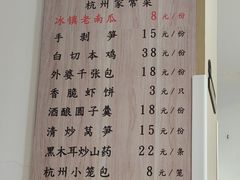 杭州家常菜
冰镇老南瓜 8元/份
手剥笋 15元/份
白切本鸡 38元/份
外婆千张包 18元/份
香脆虾饼 3元/只
酒酿圆子羹 18元/份
清炒莴笋 15元/份
黑木耳炒山药 22元/条
杭州小笼包 8元/笼